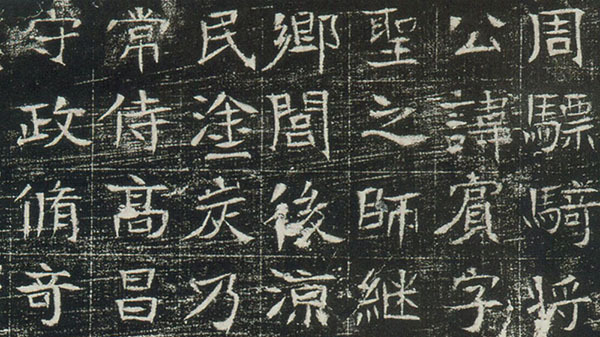 周驃騎将
公諱賓字
聖之師継
鄉閭後涼
民塗炭乃
常侍髙昌
守政脩竒